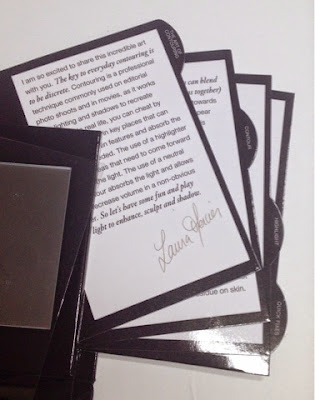 THE ART OF
CONTOURING
I am so excited to share this incredible art
with you. The key to everyday contouring is
to be discrete. Contouring is a professional
technique commonly used on editorial
photo shoots and in movies, as it works
lighting and shadows to recreate
real life, you can cheat by
n key places that can
n features and absorb the
ded. The use of a highlighter
as that need to come forward
the light. The use of a neutral
our absorbs the light and allows
ecrease volume in a non-obvious
So let's have some fun and play
light to enhance, sculpt and shadow.
Laura Mercier
u can blend
as together)
owards
pear
CONTOUR
HIGHLIGHT
QUICK FIXES
due on skin.